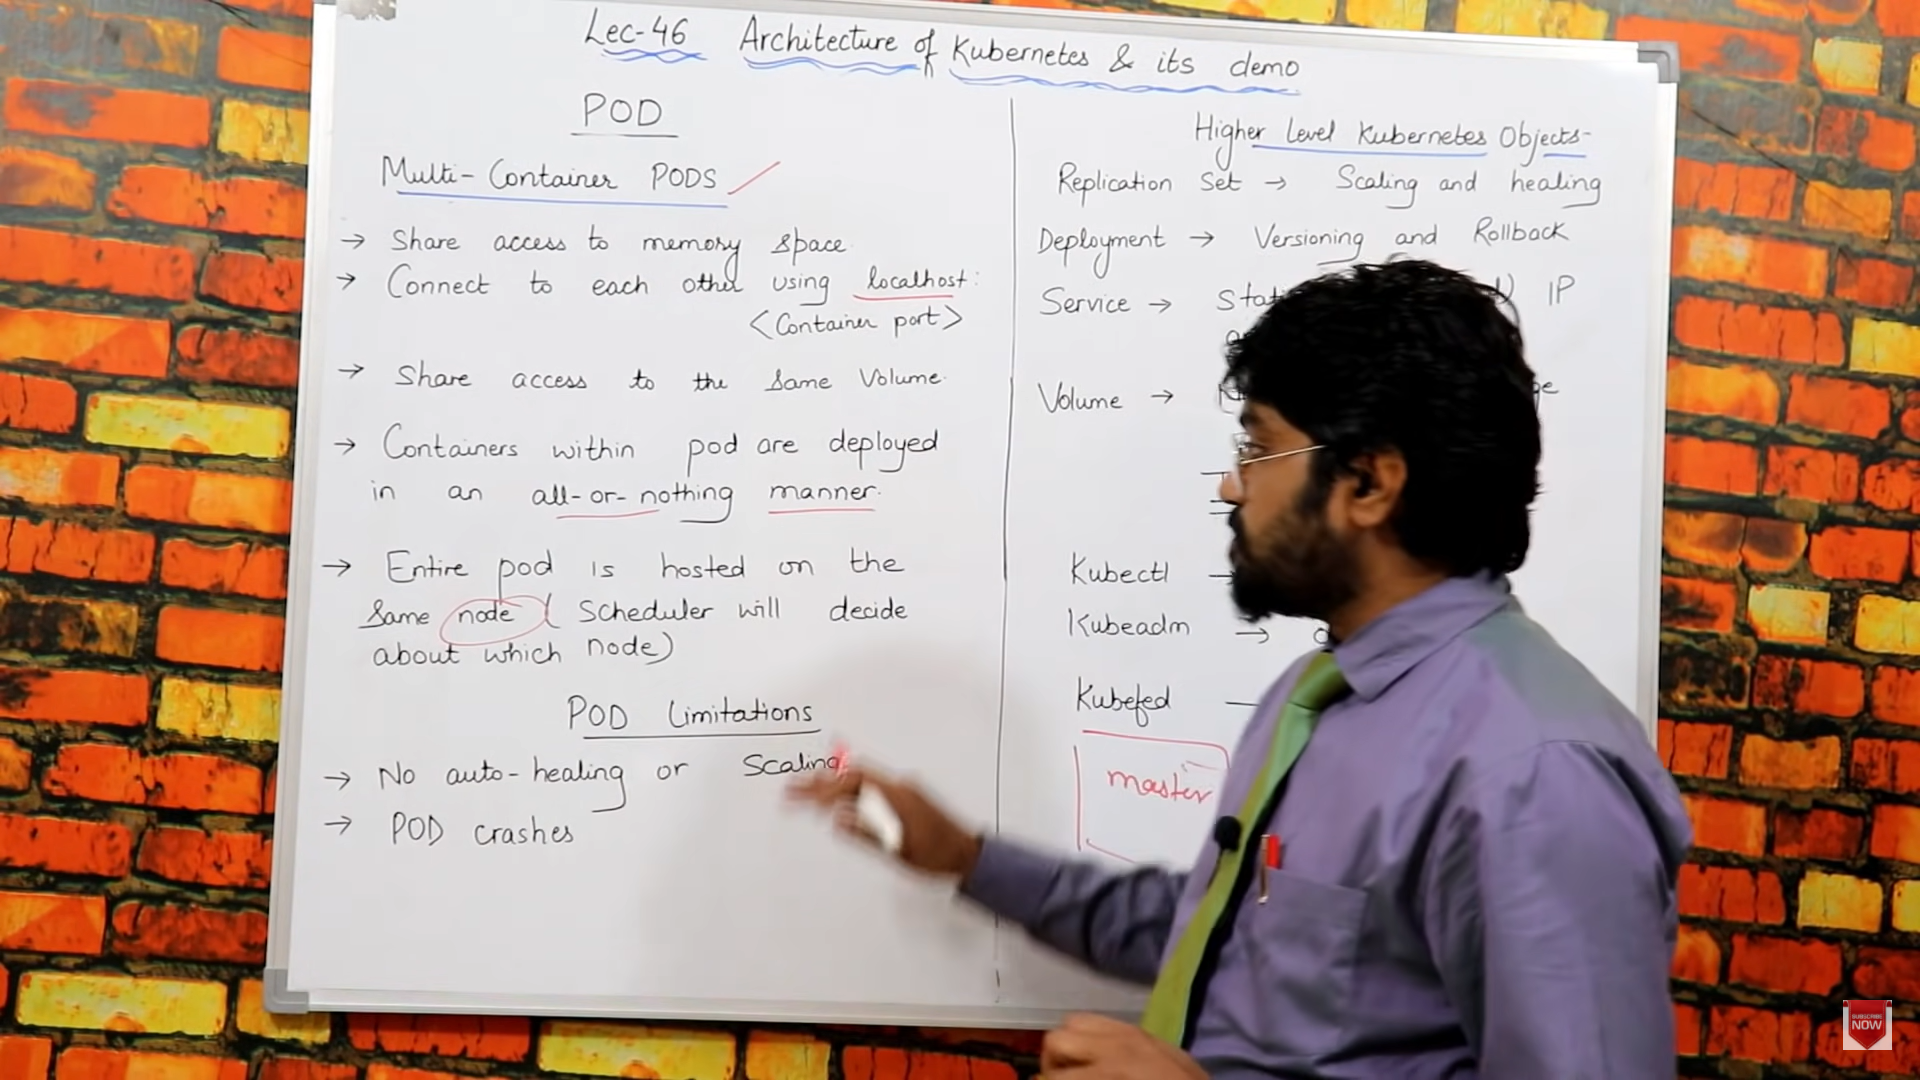 Lec-46 Architecture of Kubernetes & its demo
POD
Multi-Container PODS
→ Share access to memory space.
→ Connect to each other using localhost:
<Container port>
→ Share access to the same Volume.
→ Containers within pod are deployed
in an all-or-nothing manner.
→ Entire pod is hosted on the
same node (Scheduler will decide
about which node)
POD Limitations
→ No auto-healing or Scaling
→ POD crashes
Higher Level Kubernetes Objects-
Replication Set → Scaling and healing
Deployment → Versioning and Rollback
Service → IP
Volume →
Kubectl →
Kubeadm →
Kubefed
master
SUBSCRIBE
NOW